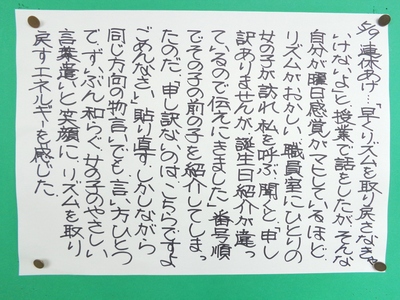 5/9 連休あけ…「早くリズムを取り戻さなきゃ
いけないよ」と授業で話をしたが、そんな
自分が曜日感覚がマヒしているほど
リズムがおかしい。職員室にひとりの
女の子が訪れ、私を呼ぶ。聞くと「申し
訳ありませんが、誕生日紹介が違っ
ているので伝えにきました」番号順
でその子の前の子を紹介してしまっ
たのだ。「申し訳ないのは、こちらですよ
ごめんなさい」貼り直す。しかしながら
同じ方向の物言いでも、言い方ひとつ
でずいぶん和らぐ。女の子のやさしい
言葉遣いと笑顔に、リズムを取り
戻すエネルギーを感じた。